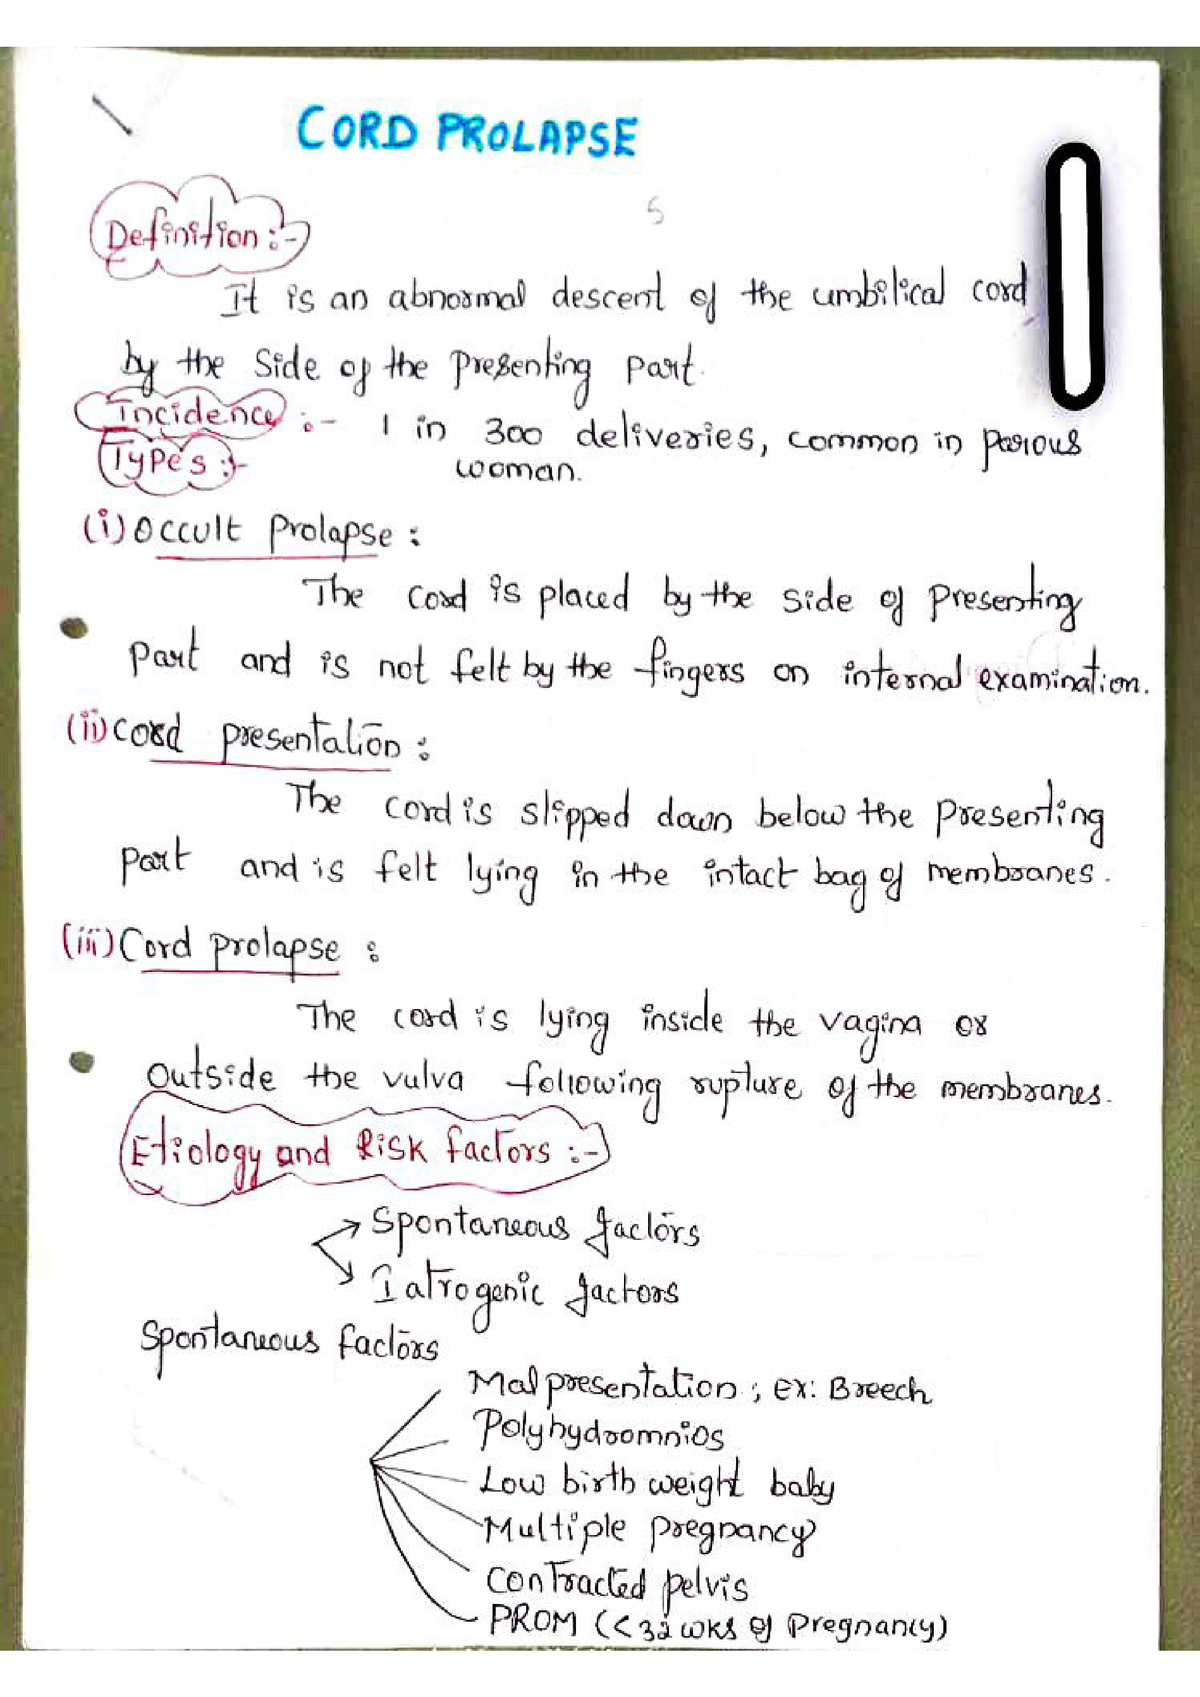 CORD PROLAPSE
5
Definition :-
It is an abnormal descent of the umbilical cord
by the Side of the Presenting part.
Incidence :- 1 in 300 deliveries, common in parous
woman.
Types :-
(i) Occult Prolapse :
The cord is placed by the side of presenting
part and is not felt by the fingers on internal examination.
(ii) Cord presentation :
The cord is slipped down below the presenting
part and is felt lying in the intact bag of membranes.
(iii) Cord prolapse :
The cord is lying inside the vagina or
outside the vulva following rupture of the membranes.
Etiology and Risk factors :-
Spontaneous factors
Iatrogenic factors
Spontaneous factors
Malpresentation ; ex: Breech
Polyhydromnios
Low birth weight baby
Multiple pregnancy
Contracted pelvis
PROM (<32 wks of Pregnancy)